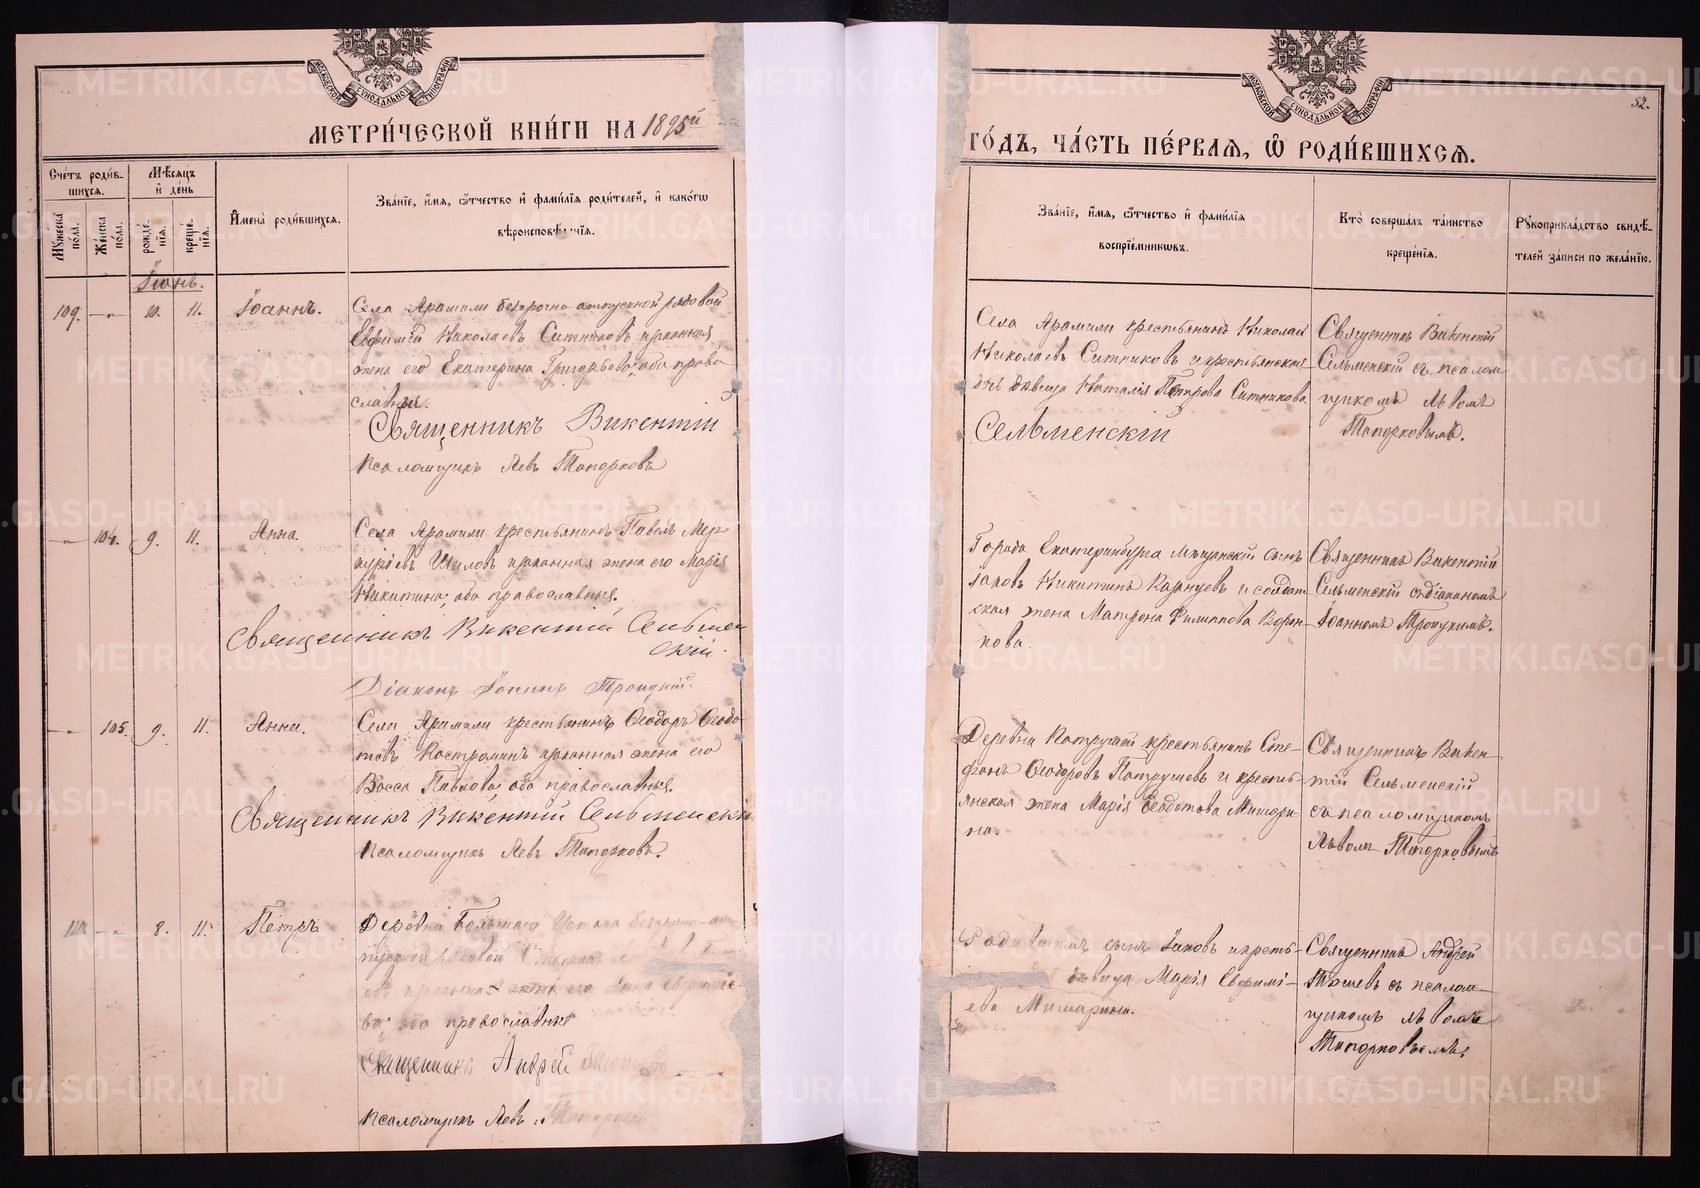 МЕТРИ́ЧЕСКОЙ КНИ́ГИ НА 1895й
ГО́ДЪ, ЧА́СТЬ ПЕ́РВАЯ, Ѡ РОДИ́ВШИХСЯ.
52.
Сче́тъ роди́в-
шихся.
Мꙋ́жеска по́ла.
Же́нска по́ла.
Мѣ́сяцъ
и҆ де́нь
рожде́-
нїя.
креще́-
нїя.
И҆мена̀ роди́вшихся.
Зва́нїе, и҆́мя, ѻ҆́тчество и҆ фами́лїя роди́телей, и҆ како́гѡ
вѣроисповѣ́данїя.
Зва́нїе, и҆́мя, ѻ҆́тчество и҆ фами́лїя
воспрїе́мникѡвъ.
Кто̀ соверша́лъ та́инство
креще́нїя.
Рꙋкоприкла́дство свидѣ́-
телей за́писи по жела́нїю.
Іюнь.
109. 10. 11. Іоаннъ.
Села Арамили безсрочно отпускной рядовой
Евфимій Николаевъ Ситниковъ и законная
жена его Екатерина Григорьева, оба право
славные.
Священникъ Викентій
Псаломщикъ Левъ Топорковъ
Села Арамили крестьянинъ Николай
Николаевъ Ситниковъ и крестьянская
дочь дѣвица Наталія Петрова Ситникова.
Сельменскій
Священникъ Викентій
Сельменскій съ псалом
щикомъ Львомъ
Топорковымъ.
104. 9. 11. Анна.
Села Арамили крестьянинъ Павелъ Мер
курьевъ Шиловъ и законная жена его Марія
Никитина, оба православные.
Священникъ Викентій Сельмен
скій.
Діаконъ Іоаннъ Троицкій.
Города Екатеринбурга мѣщанскій сынъ
Іаковъ Никитинъ Казанцевъ и солдат
ская жена Матрона Филиппова
кова.
Священникъ Викентій
Сельменскій съ діакономъ
Іоанномъ Троицкимъ.
105. 9. 11. Анна.
Села Арамили крестьянинъ Ѳеодоръ Ѳеодо
товъ Костроминъ и законная жена его
Васса Павлова, оба православные.
Священникъ Викентій Сельменскій
Псаломщикъ Левъ Топорковъ.
Деревни Патрушей крестьянинъ Сте-
фанъ Ѳеодоровъ Патрушевъ и кресть-
янская жена Марія Ѳеодотова Мишари-
на.
Священникъ Викен-
тій Сельменскій
съ псаломщикомъ
Львомъ Топорковымъ
110. 8. 11. Петръ
Деревни Большаго Истока безсрочно-от
пускной рядовой
евъ и законная жена его Анна Евфиміе
ва, оба православные
Священникъ Андрей
Псаломщикъ Левъ Топорковъ
сынъ Іаковъ и кресть-
дѣвица Марія Евфимі-
ева Мишарина.
Священникъ Андрей
съ псалом-
щикомъ Львомъ
Топорковымъ.
METRIKI.GASO-URAL.RU